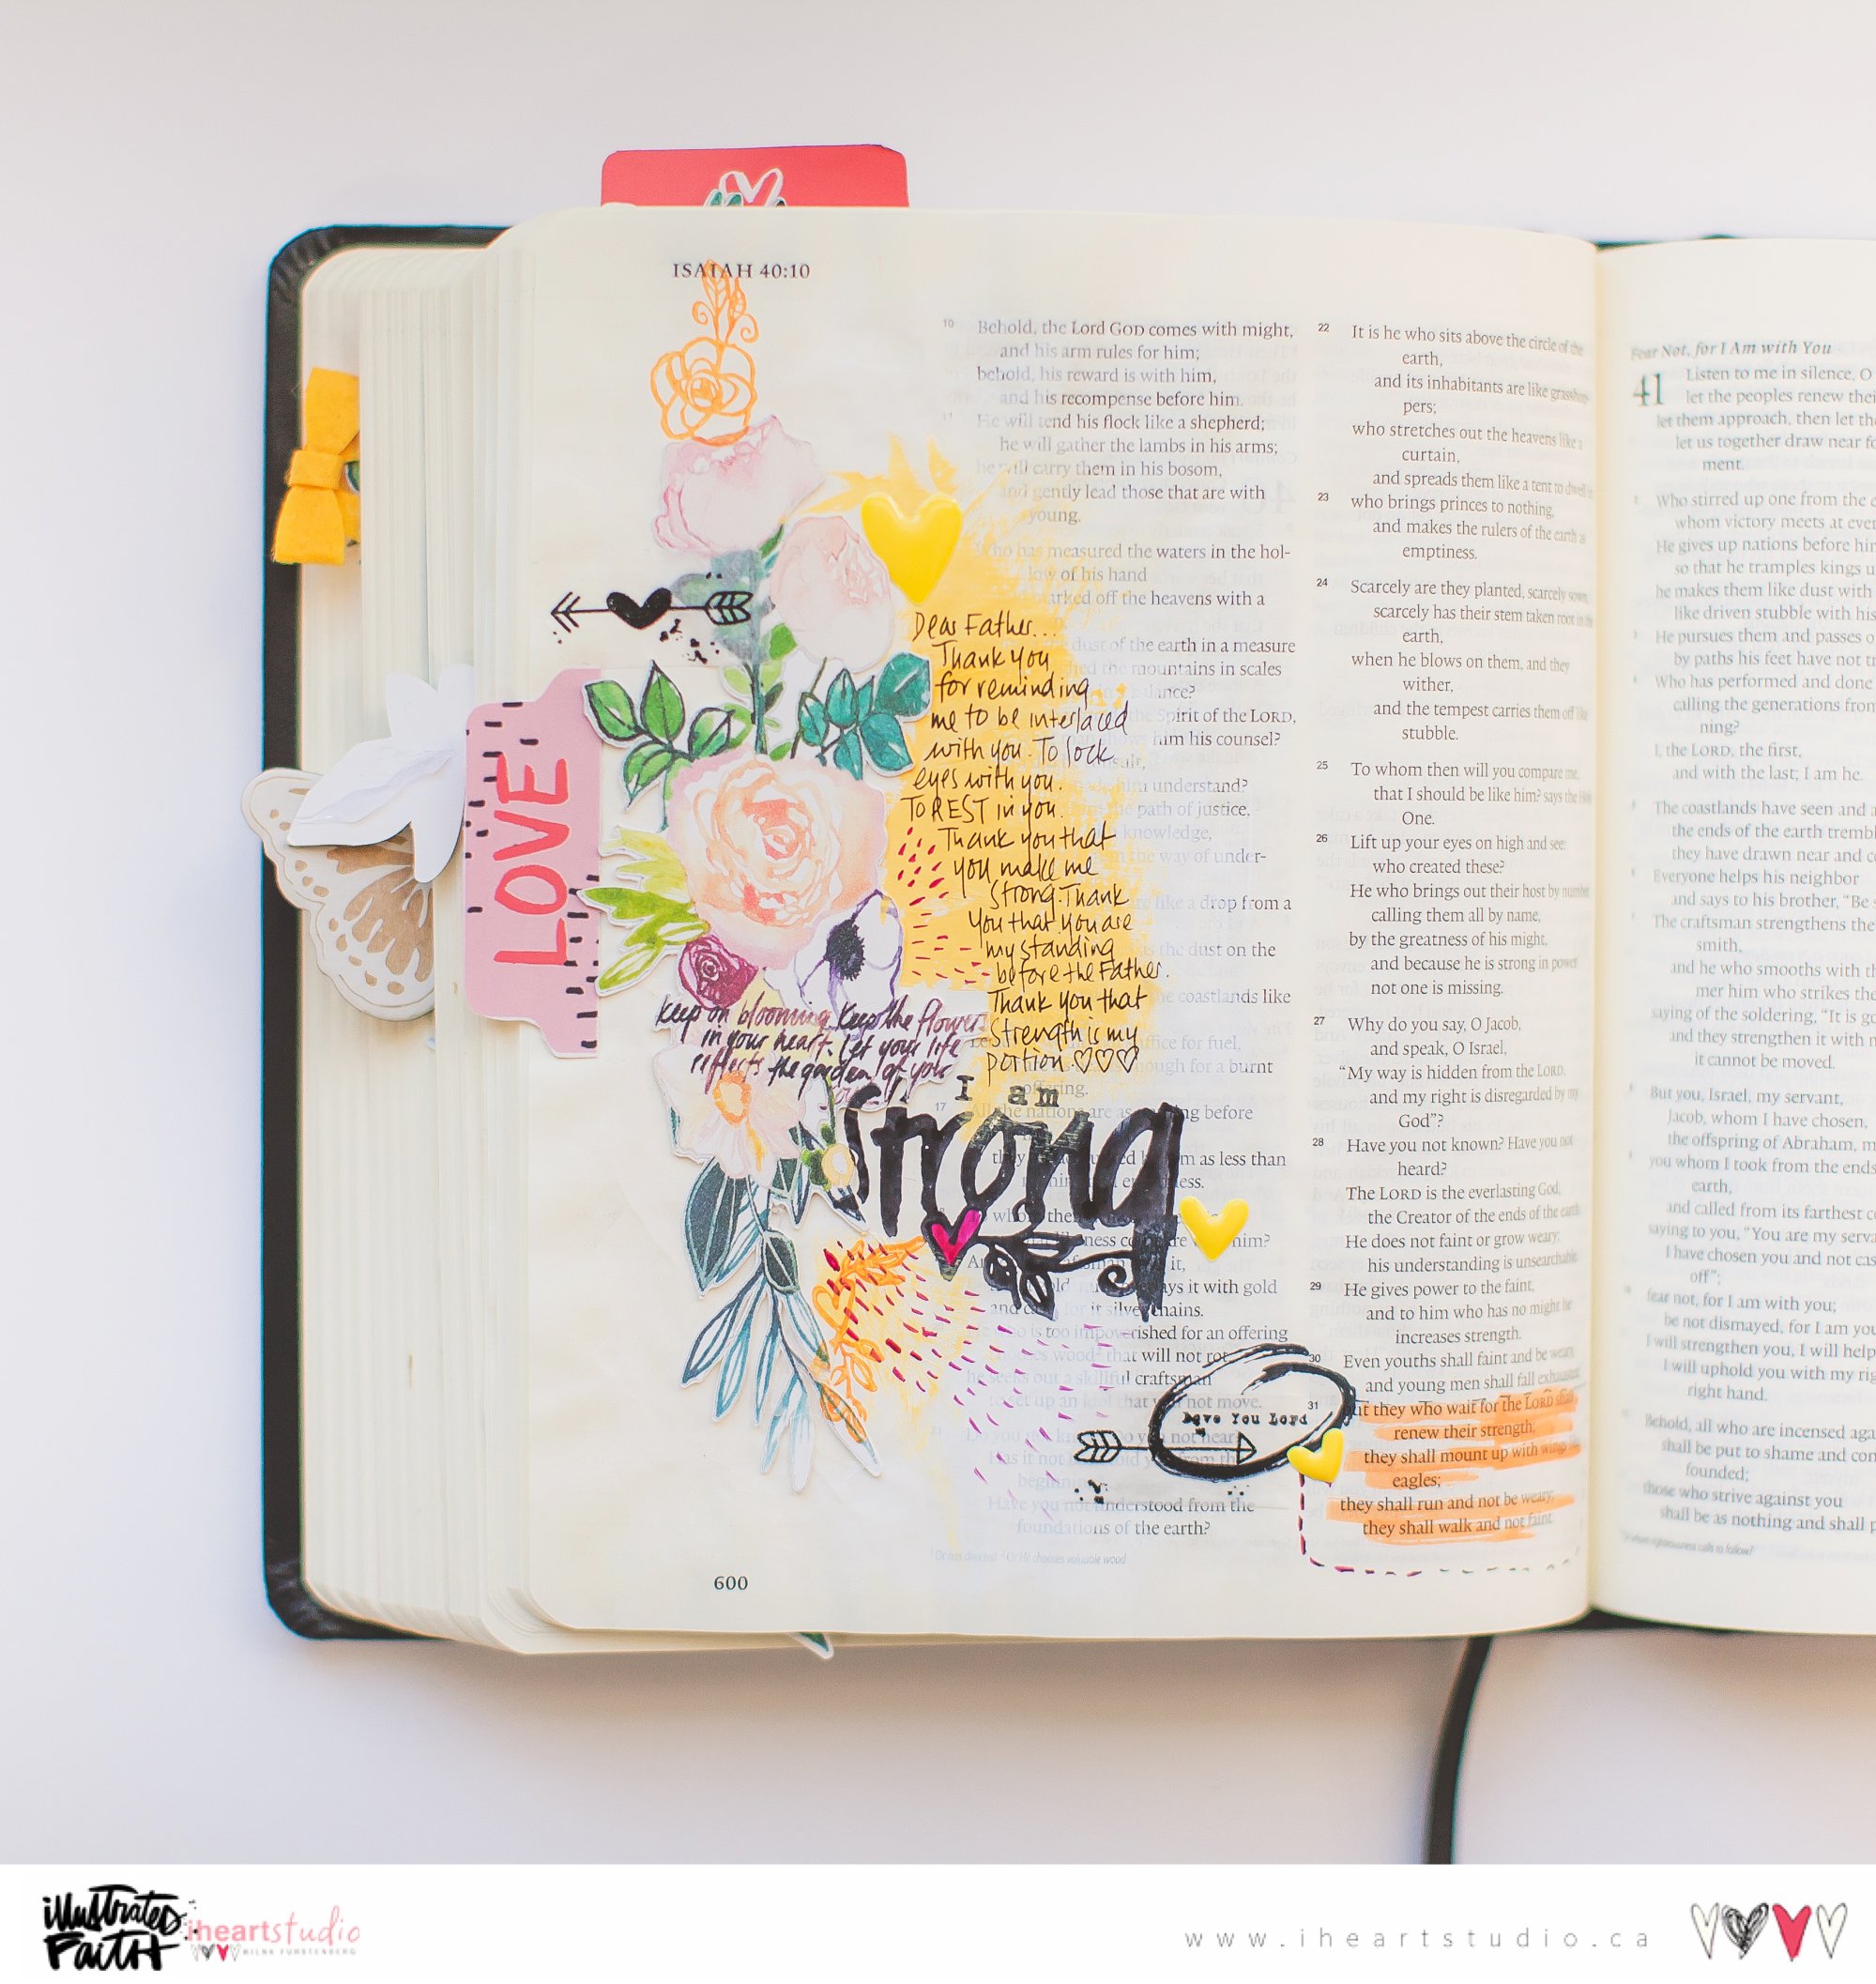 ISAIAH 40:10
10 Behold, the Lord GOD comes with might,
and his arm rules for him;
behold, his reward is with him,
and his recompense before him.
11 He will tend his flock like a shepherd;
he will gather the lambs in his arms;
he will carry them in his bosom,
and gently lead those that are with
young.
Who has measured the waters in the hol-
low of his hand
marked off the heavens with a
dust of the earth in a measure
the mountains in scales
Spirit of the LORD,
him his counsel?
him understand?
path of justice,
knowledge,
the way of under-
like a drop from a
is the dust on the
the coastlands like
for fuel,
for a burnt
offering.
17 All the nations are as before
they as less than
who
him?
it,
it with gold
and for it silver chains.
is too impoverished for an offering
wood that will not rot
he seeks out a skillful craftsman
to set up an idol that will not move.
21 Do you not know? Do you not hear
Has it not from the
beginning
Have you not understood from the
foundations of the earth?
Or has directed Or He chooses valuable wood
600
LOVE
Dear Father...
Thank you
for reminding
me to be interlaced
with you. To lock
eyes with you.
TO REST in you.
Thank you that
you make me
strong. Thank
you that you are
my standing
before the Father.
Thank you that
Strength is my
portion ♡♡♡
keep on blooming. Keep the flowers
in your heart. Let your life
reflects the garden of your
I am
strong
Love You Lord
22 It is he who sits above the circle of the
earth,
and its inhabitants are like grasshop-
pers;
who stretches out the heavens like a
curtain,
and spreads them like a tent to dwell in
23 who brings princes to nothing,
and makes the rulers of the earth as
emptiness.
24 Scarcely are they planted, scarcely sown,
scarcely has their stem taken root in the
earth,
when he blows on them, and they
wither,
and the tempest carries them off like
stubble.
25 To whom then will you compare me,
that I should be like him? says the Holy
One.
26 Lift up your eyes on high and see:
who created these?
He who brings out their host by number,
calling them all by name,
by the greatness of his might,
and because he is strong in power
not one is missing.
27 Why do you say, O Jacob,
and speak, O Israel,
"My way is hidden from the LORD,
and my right is disregarded by my
God"?
28 Have you not known? Have you not
heard?
The LORD is the everlasting God,
the Creator of the ends of the earth.
He does not faint or grow weary;
his understanding is unsearchable
29 He gives power to the faint,
and to him who has no might he
increases strength.
30 Even youths shall faint and be weary
and young men shall fall exhausted
31 but they who wait for the LORD shall
renew their strength;
they shall mount up with wings like
eagles;
they shall run and not be weary;
they shall walk and not faint.
Fear Not, for I Am with You
41 Listen to me in silence, O
let the peoples renew thei
let them approach, then let th
let us together draw near fo
ment.
2 Who stirred up one from the e
whom victory meets at ever
He gives up nations before him
so that he tramples kings u
he makes them like dust with
like driven stubble with his
3 He pursues them and passes o
by paths his feet have not tr
4 Who has performed and done
calling the generations from
ning?
I, the LORD, the first,
and with the last; I am he.
5 The coastlands have seen and a
the ends of the earth trembl
they have drawn near and c
6 Everyone helps his neighbor
and says to his brother, "Be
7 The craftsman strengthens the
smith,
and he who smooths with th
mer him who strikes the
saying of the soldering, "It is go
and they strengthen it with n
it cannot be moved.
8 But you, Israel, my servant,
Jacob, whom I have chosen,
the offspring of Abraham, m
9 you whom I took from the ends
earth,
and called from its farthest c
saying to you, "You are my serva
I have chosen you and not cas
off";
10 fear not, for I am with you;
be not dismayed, for I am you
I will strengthen you, I will help
I will uphold you with my rig
right hand.
11 Behold, all who are incensed aga
shall be put to shame and con
founded;
those who strive against you
shall be as nothing and shall p
illustrated
FAITH
iheartstudio
WILNA FURSTENBERG
www.iheartstudio.ca